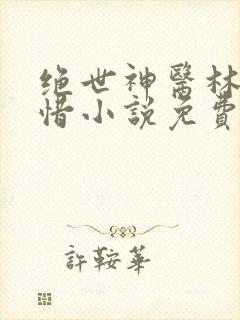 绝世神醫林
惜小説免費
許鞍華